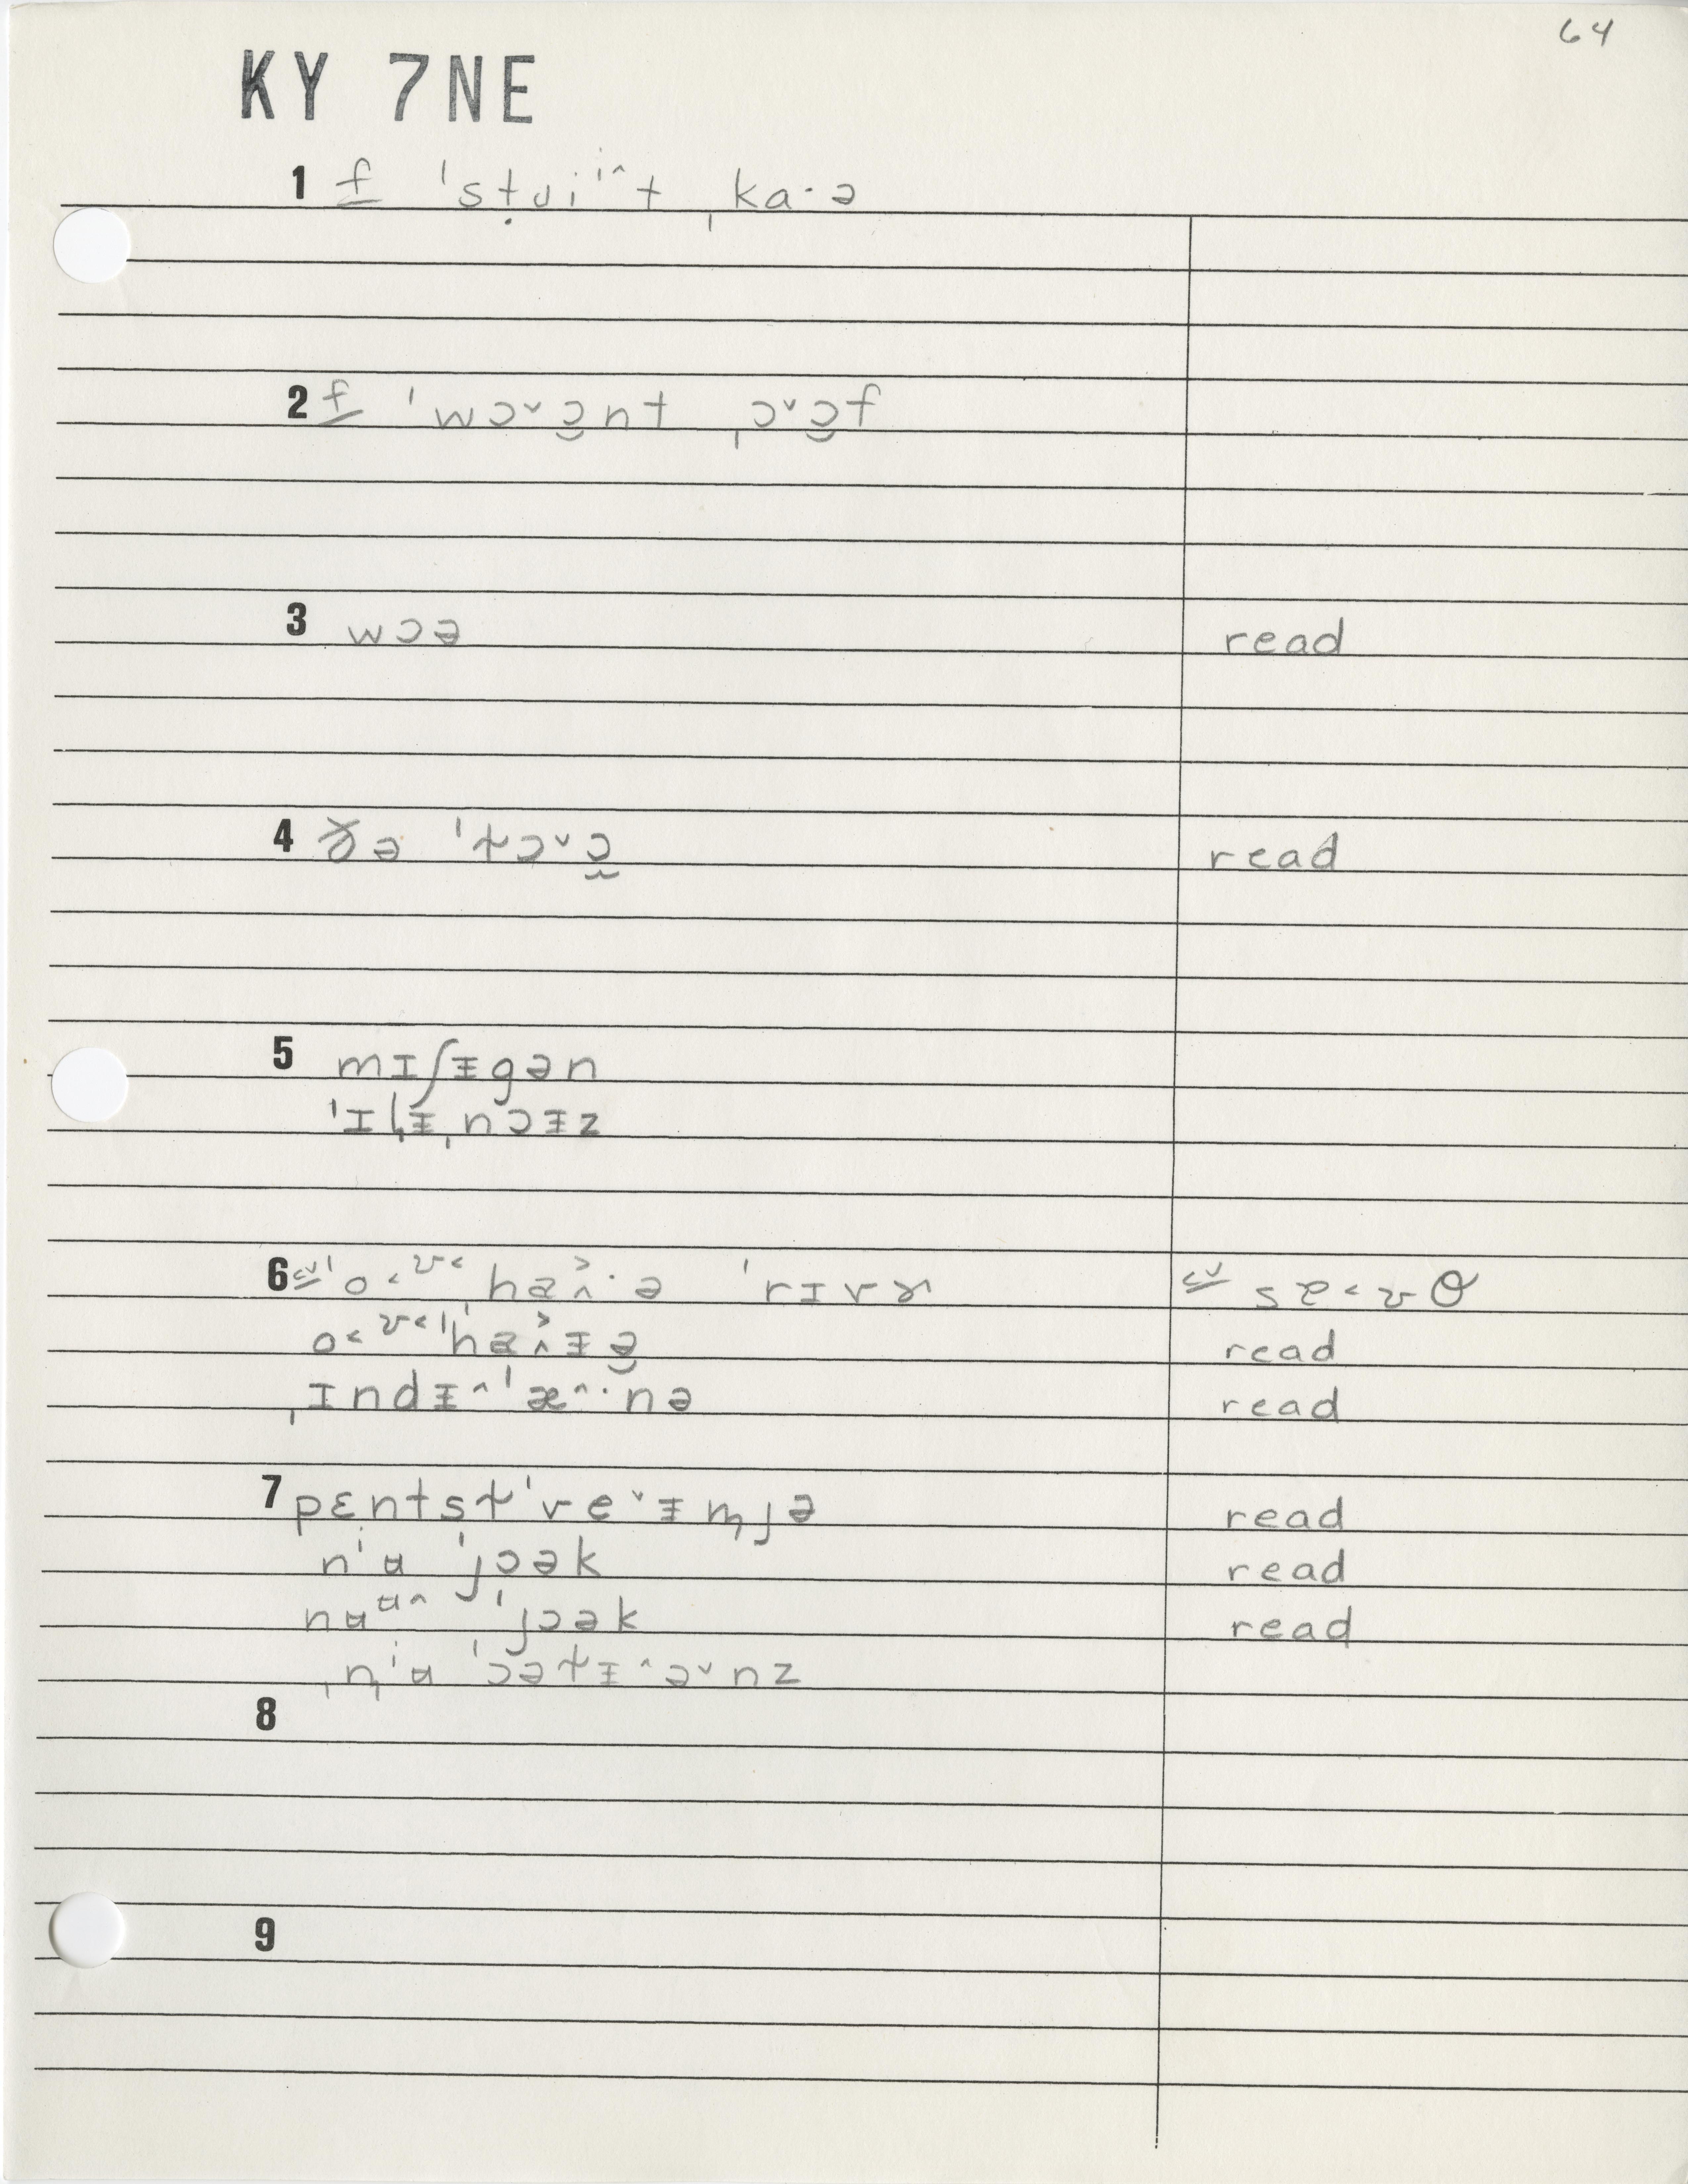 64
KY 7NE
1 f ˈst̩ɹiⁱ^t ˌka·ə
2 f ˈwɔ˅ɔ̯nt ˌɔ˅ɔ̯f
3 wɔə read
4 ðə ˈt̬ɔ˅ɔ̯ read
5 mɪʃɪ̵gən
ˈɪl̩ɪ̵ˌnɔɪ̵z
6 cv ˈo˂ʊ˂ˌhaˆ·ə ˈrɪvɚ cv sɐ˂ʊθ
o˂ʊ˂ˈhaˆɪ̵ə̯ read
ˌɪndɪ̵^ˈæ^·nə read
7 pɛntst̬ˈve˅ɪ̵njə read
nˈʉ ˈjɔək read
nʉʉ^ ˈjɔək read
ˌnˈʉ ˈɔət̬ɪ̵^ə˅nz
8
9